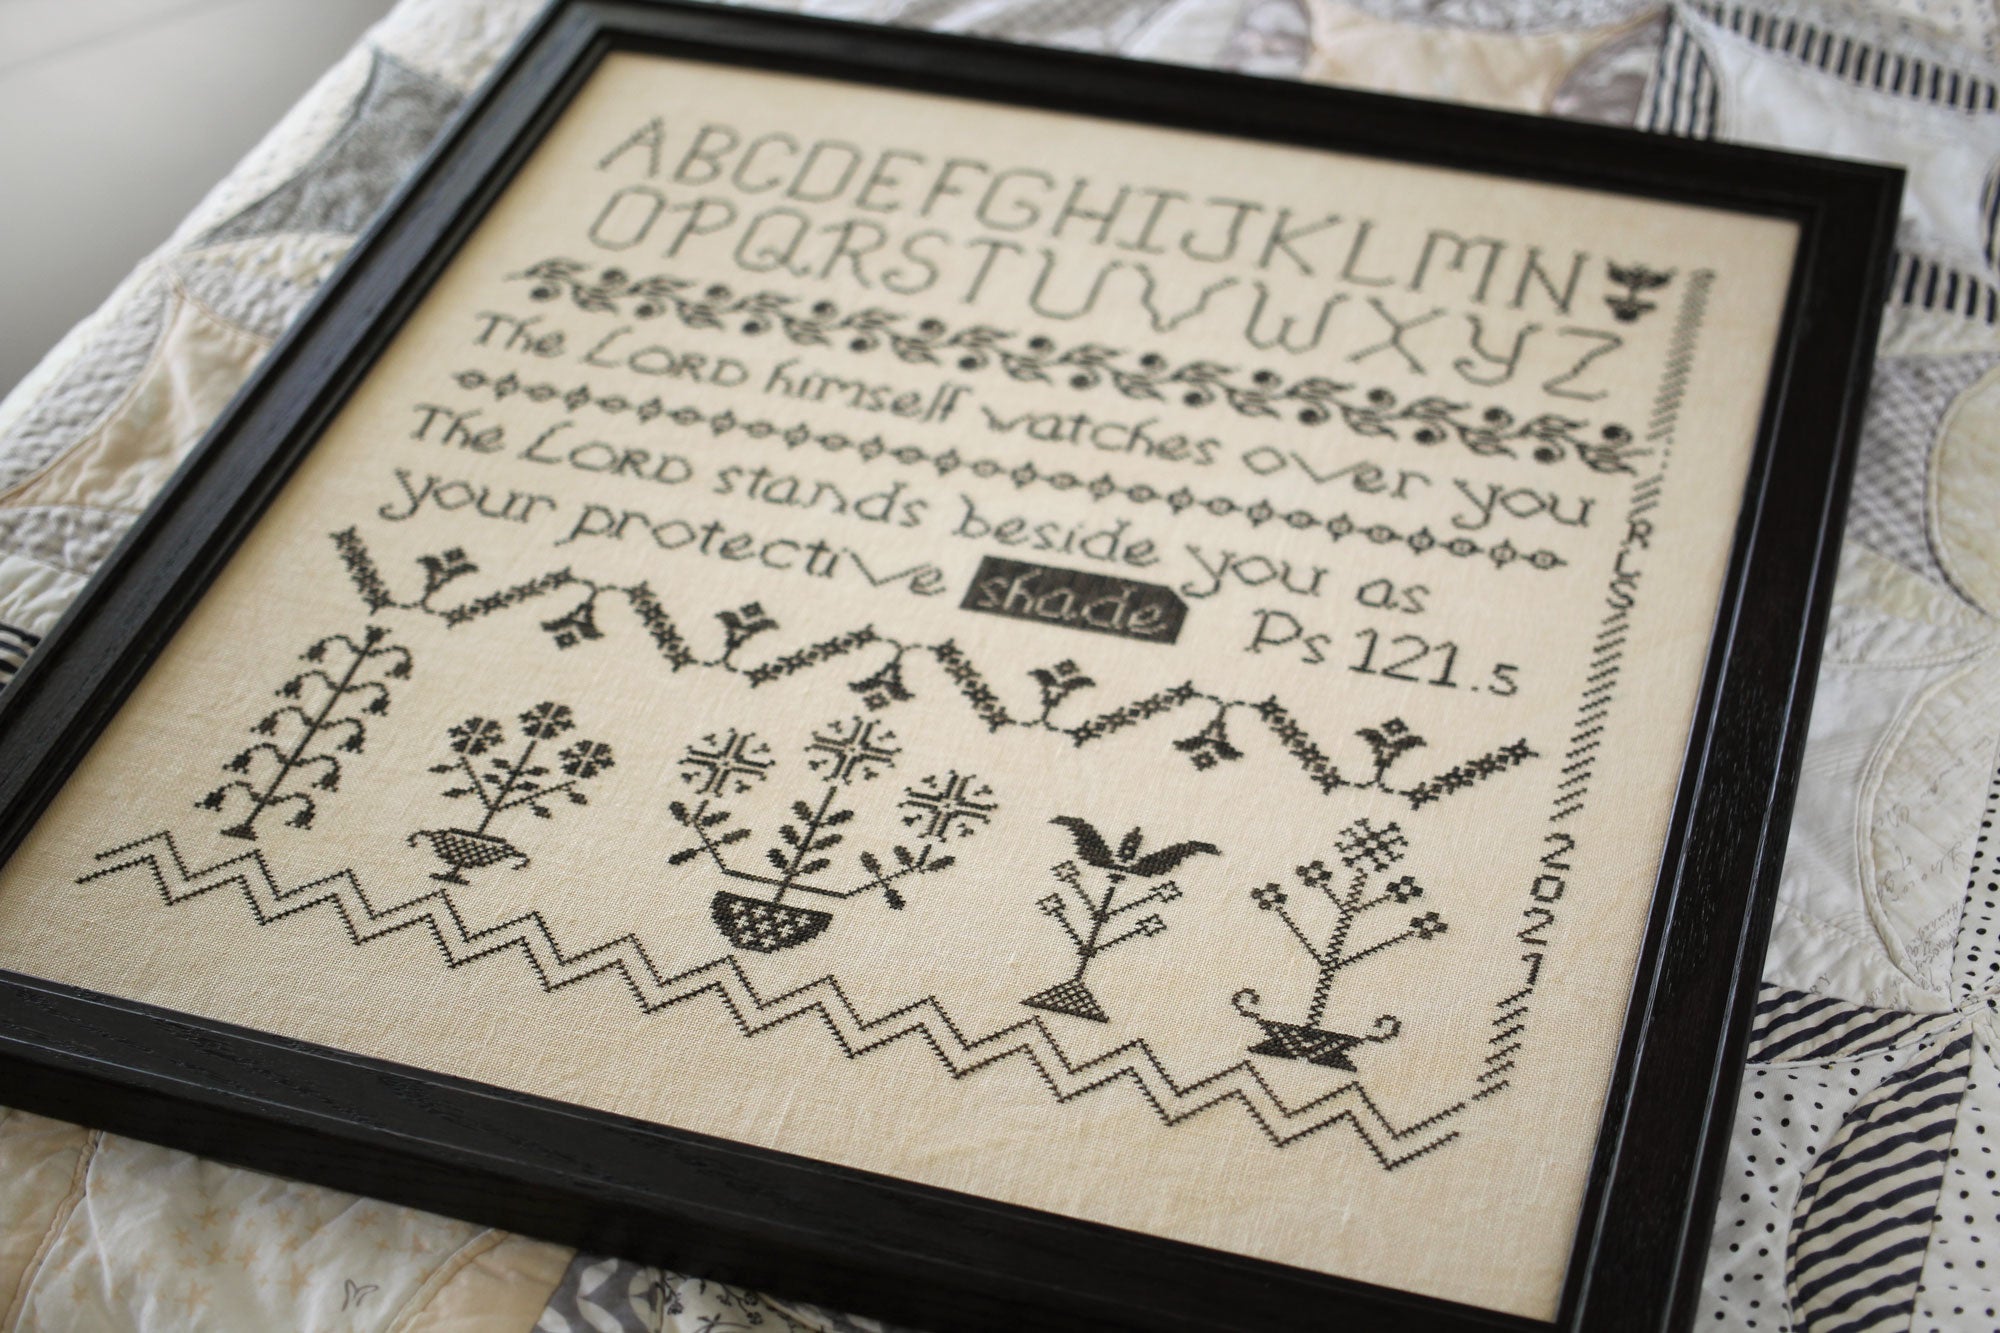 ABCDEFGHIJKLMN
OPQRSTUVWXYZ
The LORD himself watches over you
The LORD stands beside you as
your protective shade Ps 121.5
RLSS
2021